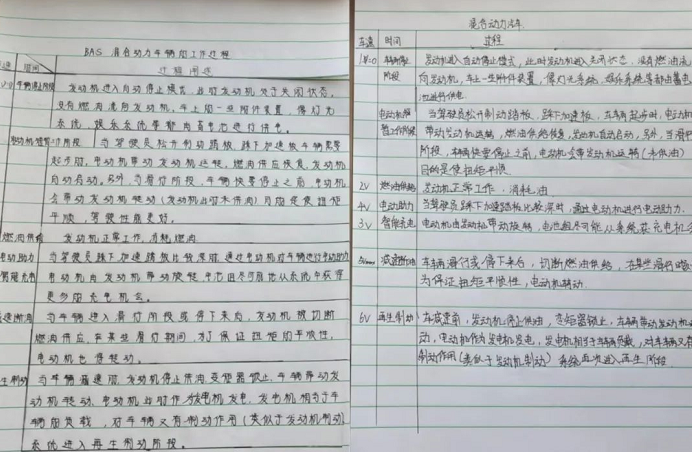 BAS 混合动力车辆的工作过程
车速 时间 过程阐述
V=0 车辆停止阶段 发动机进入自动停止模式,此时发动机处于关闭状态。
没有燃油流向发动机,车上的一些附件装置,像灯光
系统,娱乐系统等都由蓄电池进行供电。
电动机短暂工作阶段 当驾驶员松开制动踏板,踩下加速板车辆需要
起步时,电动机带动发动机运转,燃油供应恢复,发动机
自动启动。另外,当滑行阶段,车辆快要停止之前,电动机
会带动发动机转动(发动机此时未供油)目的是使扭矩
平顺,驾驶性能更好。
燃油供给 发动机正常工作,消耗燃油
电动助力 当驾驶员踩下加速踏板比较深时,通过电动机对车辆进行电动助力
智能充电 电动机由发动机带动旋转,电池组尽可能地从系统中获得
更多的充电机会。
减速断油 当车辆进入滑行阶段或停下来后,发动机被切断
燃油供应,在某些滑行期间,为了保证扭矩的平顺性,
电动机也得转动。
再生制动 当车辆减速时,发动机停止供油,变矩器锁止,车辆带动发
动机转动,电动机此时作为发电机发电,发电机相当于车
辆的负载,对车辆又有制动作用(类似于发动机制动)
系统进入再生制动阶段。
混合动力汽车
车速 时间 过程
V=0 车辆停止 发动机进入自动停止模式,此时发动机进入关闭状态,没有燃油流
阶段 向发动机,车上一些附件装置,像灯光系统,娱乐系统等都由蓄电
池进行供电。
电动机短 当驾驶员松开制动踏板,踩下加速板,车辆起步时,电动机
暂工作阶段 带动发动机运转,燃油供给恢复,发动机自动启动,另外,当滑行
阶段,车辆快要停止之前,电动机会带动发动机运转(未供油)
目的是使扭矩平顺
2V 燃油供给 发动机正常工作,消耗油
4V 电动助力 当驾驶员踩下加速踏板比较深时,通过电动机进行电动助力.
3V 智能充电 电动机由发动机带动旋转,电池组尽可能从系统获充电机会
减速断油 车辆滑行或停下来后,切断燃油供给,在某些滑行
为保证扭矩平顺性,电动机转动.
6V 再生制动 车减速时,发动机停止供油,变矩器锁止,车辆带动发动机
动,电动机作为发电机发电,发电机相当于车辆负载,对车辆又有
制动作用(类似于发动机制动)系统再次进入再生阶段.